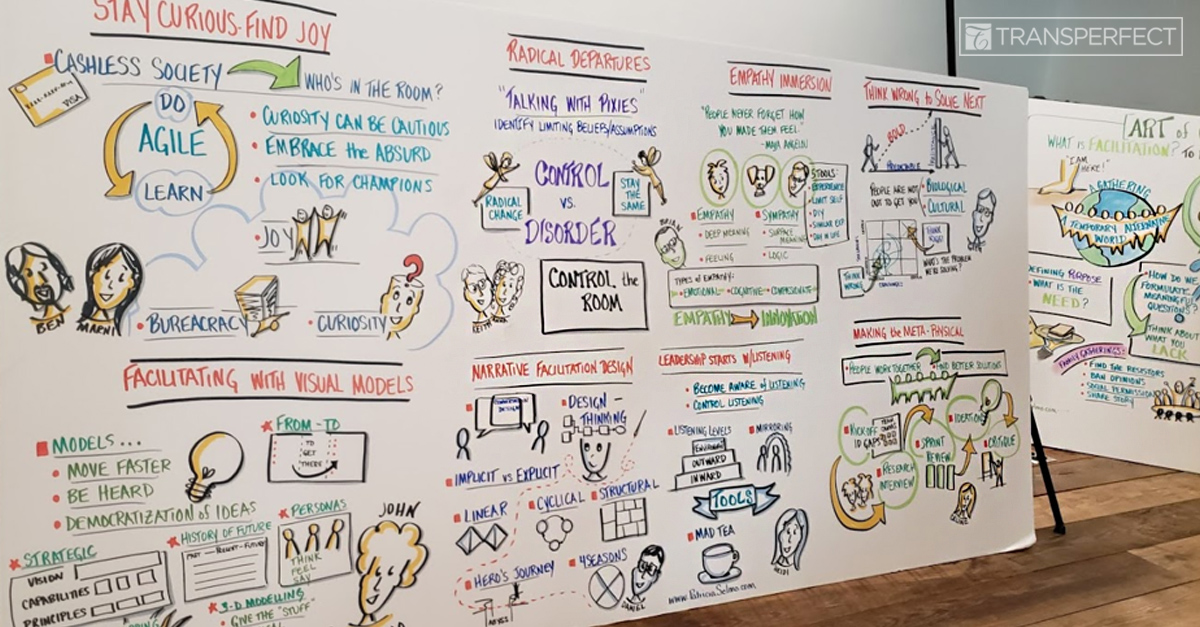 TRANSPERFECT
STAY CURIOUS-FIND JOY
CASHLESS SOCIETY
VISA
WHO'S IN THE ROOM?
DO
AGILE
LEARN
• CURIOSITY CAN BE CAUTIOUS
• EMBRACE the ABSURD
• LOOK FOR CHAMPIONS
• JOY
BEN
MARNI
• BUREACRACY
• CURIOSITY
RADICAL DEPARTURES
"TALKING WITH PIXIES"
IDENTIFY LIMITING BELIEFS/ASSUMPTIONS
CONTROL
VS.
DISORDER
RADICAL
CHANGE
STAY
THE
SAME
CONTROL the
ROOM
EMPATHY IMMERSION
"PEOPLE NEVER FORGET HOW
YOU MADE THEM FEEL."
-MAYA ANGELOU
BRIAN
EMPATHY
• DEEP MEANING
• FEELING
SYMPATHY
• SURFACE
MEANING
• LOGIC
5 TOOLS:
• EXPERIENCE
• LIMIT SELF
• DIY
• SIMILAR EXP.
• DAY IN LIFE
TYPES OF EMPATHY:
• EMOTIONAL • COGNITIVE • COMPASSIONATE
EMPATHY
INNOVATION
THINK WRONG to SOLVE NEXT
BOLD
PREDICTABLE
PEOPLE ARE NOT
OUT TO GET YOU
• BIOLOGICAL
• CULTURAL
THINK
WRONG
WHAT'S THE PROBLEM
WE'RE SOLVING?
FACILITATING WITH VISUAL MODELS
MODELS...
• MOVE FASTER
• BE HEARD
• DEMOCRATIZATION of IDEAS
FROM-TO
TO
GET
THERE
STRATEGIC
VISION
CAPABILITIES
PRINCIPLES
HISTORY OF FUTURE
PAST - PRESENT - FUTURE
PERSONAS
THINK
FEEL
SAY
3-D MODELLING
• GIVE THE "STUFF"
JOHN
NARRATIVE FACILITATION DESIGN
DESIGN-
THINKING
IMPLICIT vs EXPLICIT
LINEAR
CYCLICAL
STRUCTURAL
HERO'S JOURNEY
ABYSS
4 SEASONS
DANIEL
LEADERSHIP STARTS W/LISTENING
• BECOME AWARE of LISTENING
• CONTROL LISTENING
LISTENING LEVELS
OUTWARD
INWARD
MIRRORING
TOOLS
MAD TEA
HEIDI
www.PatriciaSelmo.com
MAKING the META-PHYSICAL
• PEOPLE WORK TOGETHER
• FIND BETTER SOLUTIONS
KICKOFF
10 GAPS
RESEARCH
INTERVIEW
SPRINT
REVIEW
IDEATION
CRITIQUE
ART of
WHAT IS FACILITATION?
"I AM
HERE!"
A GATHERING
A TEMPORARY ALTERNATIVE
WORLD
DEFINING PURPOSE
• WHAT IS THE
NEED?
HOW DO WE
FORMULATE
MEANINGFUL
QUESTIONS?
THINK ABOUT
WHAT YOU
LACK
FAMILY GATHERINGS:
• FIND THE RESISTORS
• BAN OPINIONS
• SOCIAL PERMISSION
• SHARE STORY